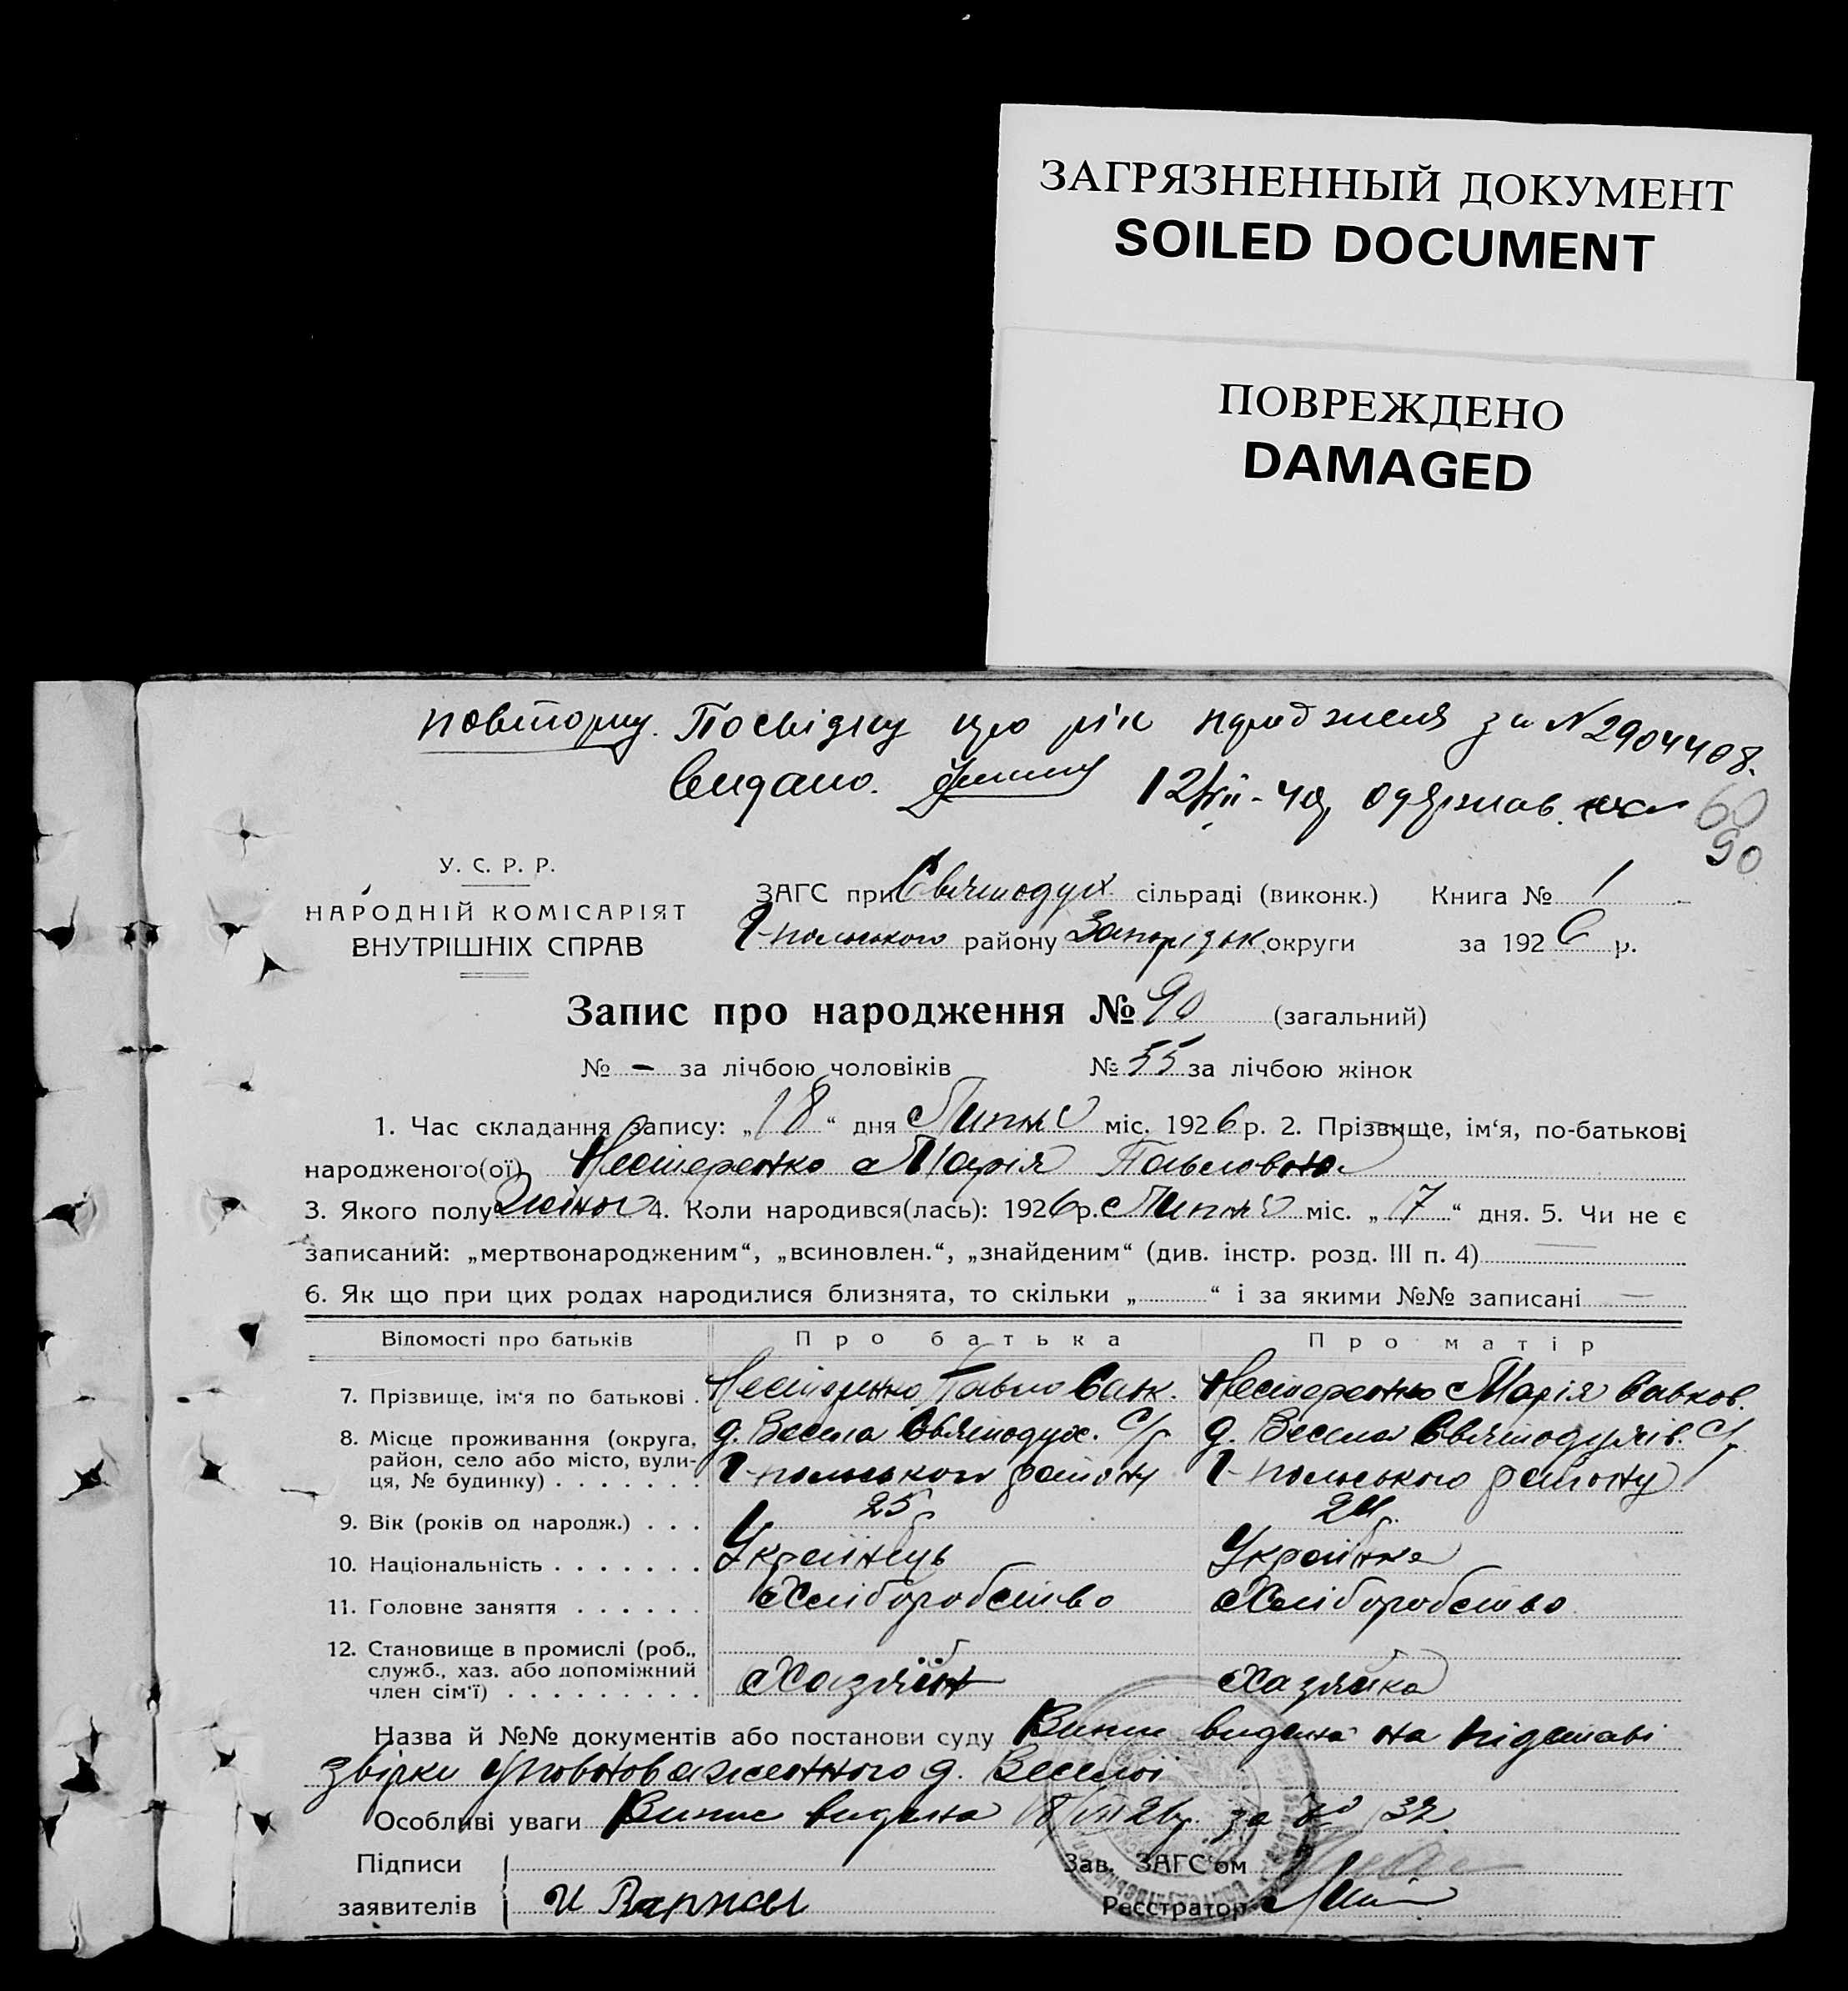 ЗАГРЯЗНЕННЫЙ ДОКУМЕНТ
SOILED DOCUMENT
ПОВРЕЖДЕНО
DAMAGED
повторну. Посвідку про рік народження за № 2904408.
видано. 12/VII-40р одержав
60
90
У. С. Р. Р.
НАРОДНІЙ КОМІСАРІЯТ
ВНУТРІШНІХ СПРАВ
ЗАГС при Святодух. сільраді (виконк.) Книга № 1
-польського району Запорізьк. округи за 1926 р.
Запис про народження № 90 (загальний)
№ - за лічбою чоловіків № 55 за лічбою жінок
1. Час складання запису: „18“ дня Липня міс. 1926 р. 2. Прізвище, ім‘я, по-батькові
народженого(ої) Нестеренко Марія Павловна
3. Якого полу Жіноч 4. Коли народився(лась): 1926 р. Липня міс. „7“ дня. 5. Чи не є
записаний: „мертвонародженим“, „всиновлен.“, „знайденим“ (див. інстр. розд. III п. 4) —
6. Як що при цих родах народилися близнята, то скільки „ “ і за якими №№ записані —
Відомості про батьків Про батька Про матір
7. Прізвище, ім‘я по батькові . Нестеренко Павло Нестеренко Марія Савков.
8. Місце проживання (округа, д. Весела Святодух. С/р д. Весела Святодухів. С/р
район, село або місто, вули-
ця, № будинку) . . . . . . . -польського району -польського району
9. Вік (років од народж.) . . . 25р. 24р.
10. Національність . . . . . . . Українець Українка
11. Головне заняття . . . . . . Хліборобство Хліборобство
12. Становище в промислі (роб.,
служб., хаз. або допоміжний
член сім‘ї) . . . . . . . . . Хазяїн Хазяйка
Назва й №№ документів або постанови суду Випис видана на підставі
звірки Уповноваженного д. Веселої
Особливі уваги Випис видана 18/VII 26р. за № 37.
Підписи Зав. ЗАГС‘ом
заявителів Реєстратор